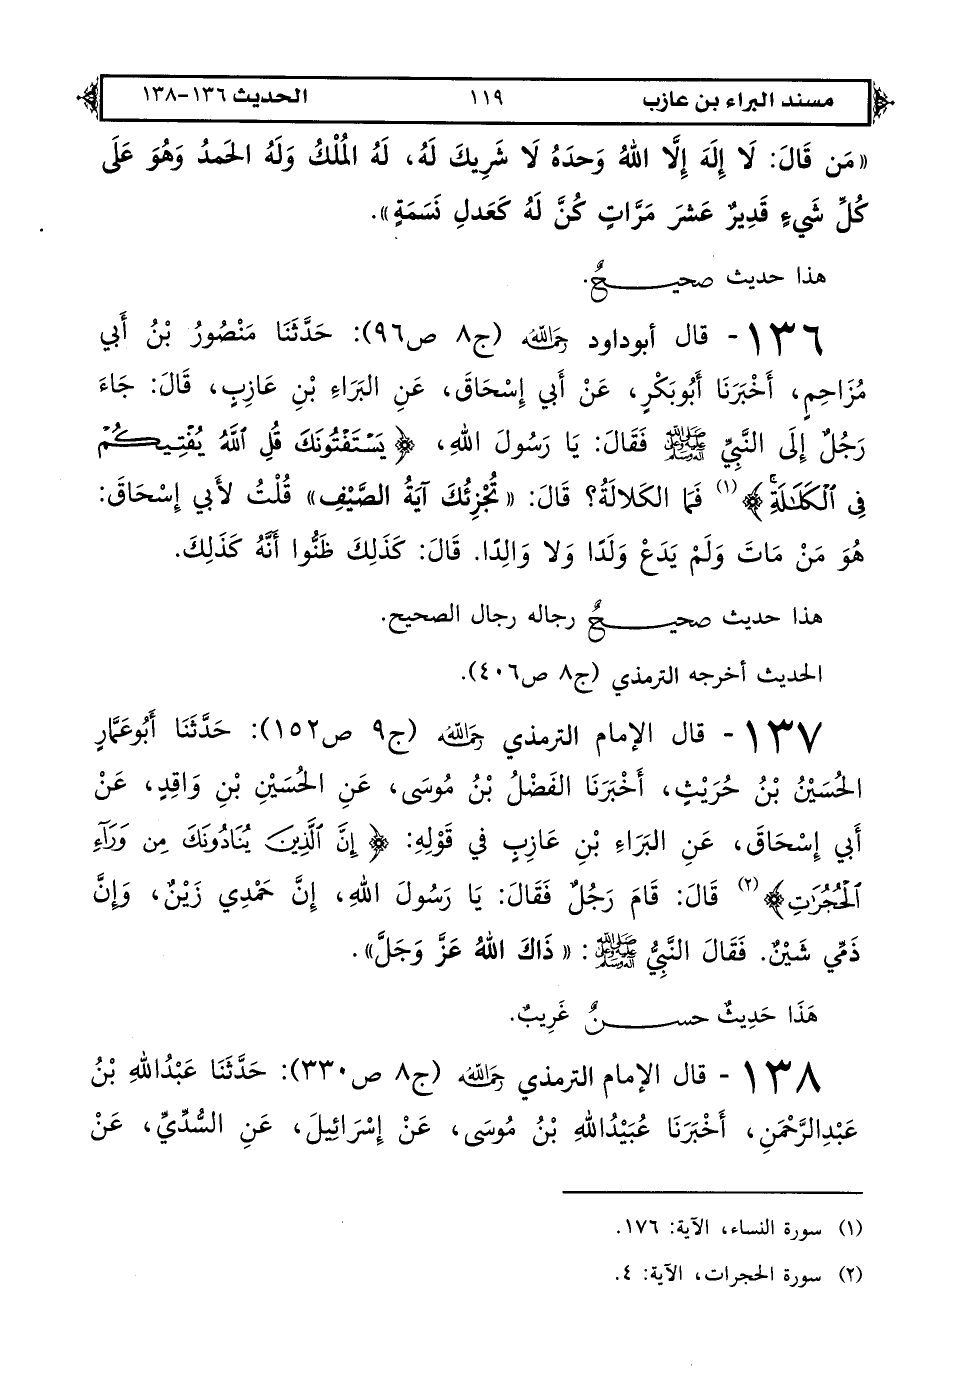 مسند البراء بن عازب ١١٩ الحديث ١٣٦-١٣٨
«مَن قَالَ: لَا إِلَهَ إِلَّا اللهُ وَحدَهُ لَا شَرِيكَ لَهُ، لَهُ المُلْكُ وَلَهُ الحَمدُ وَهُوَ عَلَى
كُلِّ شَيءٍ قَدِيرٌ عَشرَ مَرَّاتٍ كُنَّ لَهُ كَعَدلِ نَسَمَةٍ».
هذا حديث صحيـــحٌ.
١٣٦- قال أبوداود رَحِمَهُ اللهُ (ج٨ ص٩٦): حَدَّثَنَا مَنْصُورُ بْنُ أَبي
مُزَاحِمٍ، أَخْبَرَنَا أَبُوبَكْرٍ، عَنْ أَبي إِسْحَاقَ، عَنِ البَرَاءِ بْنِ عَازِبٍ، قَالَ: جَاءَ
رَجُلٌ إِلَى النَّبِيِّ ﷺ فَقَالَ: يَا رَسُولَ اللهِ، ﴿يَسْتَفْتُونَكَ قُلِ ٱللَّهُ يُفْتِيكُمْ
فِي ٱلْكَلَـٰلَةِۚ﴾(١) فَمَا الكَلَالَةُ؟ قَالَ: «تُجْزِئُكَ آيَةُ الصَّيْفِ» قُلْتُ لأَبي إِسْحَاقَ:
هُوَ مَنْ مَاتَ وَلَمْ يَدَعْ وَلَدًا وَلا وَالِدًا. قَالَ: كَذَلِكَ ظَنُّوا أَنَّهُ كَذَلِكَ.
هذا حديث صحيـــحٌ رجاله رجال الصحيح.
الحديث أخرجه الترمذي (ج٨ ص٤٠٦).
١٣٧- قال الإمام الترمذي رَحِمَهُ اللهُ (ج٩ ص١٥٢): حَدَّثَنَا أَبُوعَمَّارٍ
الحُسَيْنُ بْنُ حُرَيْثٍ، أَخْبَرَنَا الفَضْلُ بْنُ مُوسَى، عَنِ الحُسَيْنِ بْنِ وَاقِدٍ، عَنْ
أَبي إِسْحَاقَ، عَنِ البَرَاءِ بْنِ عَازِبٍ في قَوْلِهِ: ﴿إِنَّ ٱلَّذِينَ يُنَادُونَكَ مِن وَرَآءِ
ٱلْحُجُرَٰتِ﴾(٢) قَالَ: قَامَ رَجُلٌ فَقَالَ: يَا رَسُولَ اللهِ، إِنَّ حَمْدِي زَيْنٌ، وَإِنَّ
ذَمِّي شَيْنٌ. فَقَالَ النَّبِيُّ ﷺ: «ذَاكَ اللهُ عَزَّ وَجَلَّ».
هَذَا حَدِيثٌ حســـنٌ غَرِيبٌ.
١٣٨- قال الإمام الترمذي رَحِمَهُ اللهُ (ج٨ ص٣٣٠): حَدَّثَنَا عَبْدُاللهِ بْنُ
عَبْدِالرَّحْمَنِ، أَخْبَرَنَا عُبَيْدُاللهِ بْنُ مُوسَى، عَنْ إِسْرَائِيلَ، عَنِ السُّدِّيِّ، عَنْ
(١) سورة النساء، الآية: ١٧٦.
(٢) سورة الحجرات، الآية: ٤.